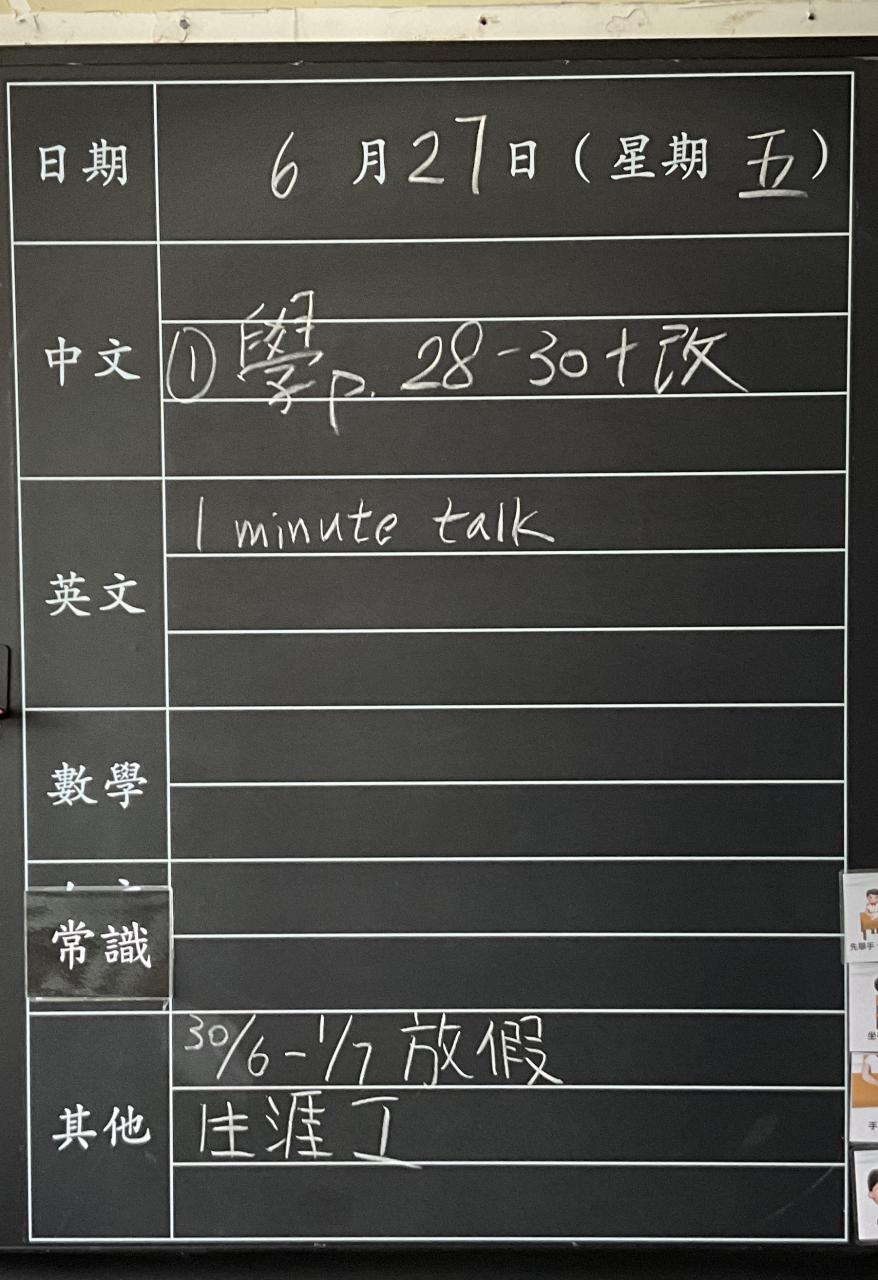 日期 6 月 27 日（星期 五）
中文 ① 學 p. 28-30+改
英文 1 minute talk
數學
常識
其他 30/6-1/7 放假
生涯工
先舉手
坐
手